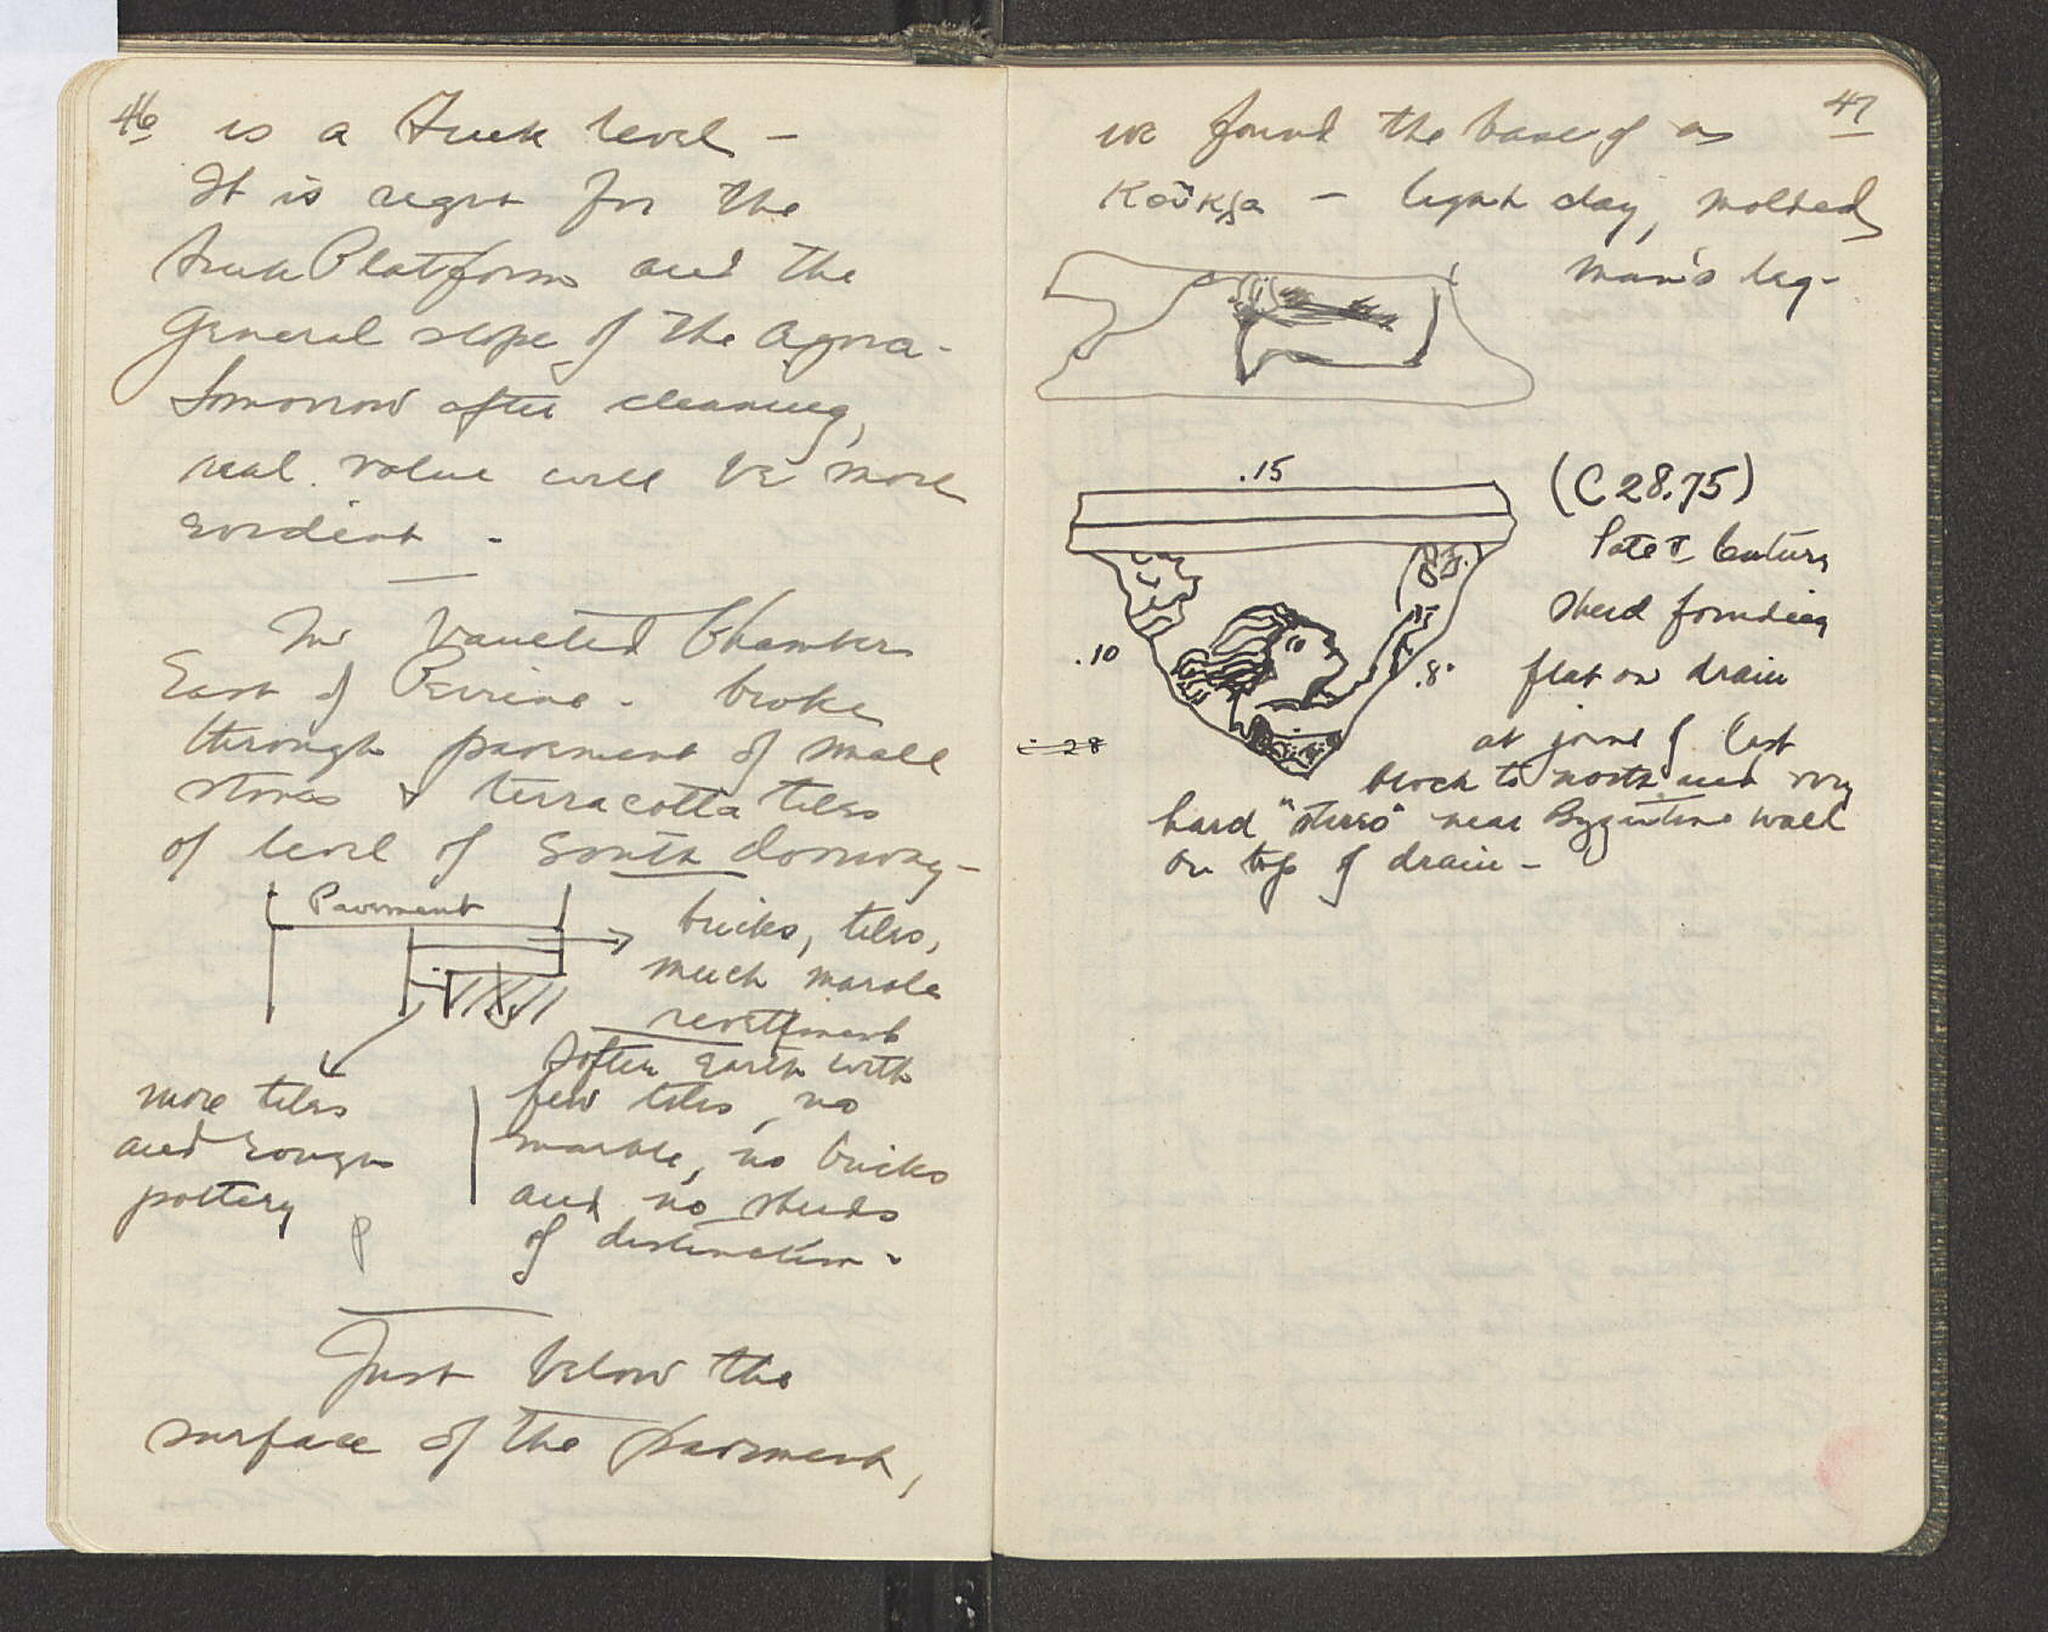 46
is a Greek level –
It is right for the
Greek Platform and the
General slope of the Agora -
Tomorrow after cleaning,
real value will be more
evident -
In Vaulted Chamber
East of Peirene - broke
through pavement of small
stones & terracotta tiles
of level of South doorway –
Pavement
bricks, tiles,
much marble
revettment
Softer earth with
few tiles, no
marble, no bricks
and no sherds
of distinction -
more tiles
and rough
pottery
Just below the
surface of the pavement,
47
we found the base of a
Koύκλα – light clay, molded
man's leg -
.15
(C 28.75)
late V Century
sherd found lying
flat on drain
.10
.8
C 28
at joint of last
block to north and very
hard "stereo" near Byzantine wall
on top of drain –